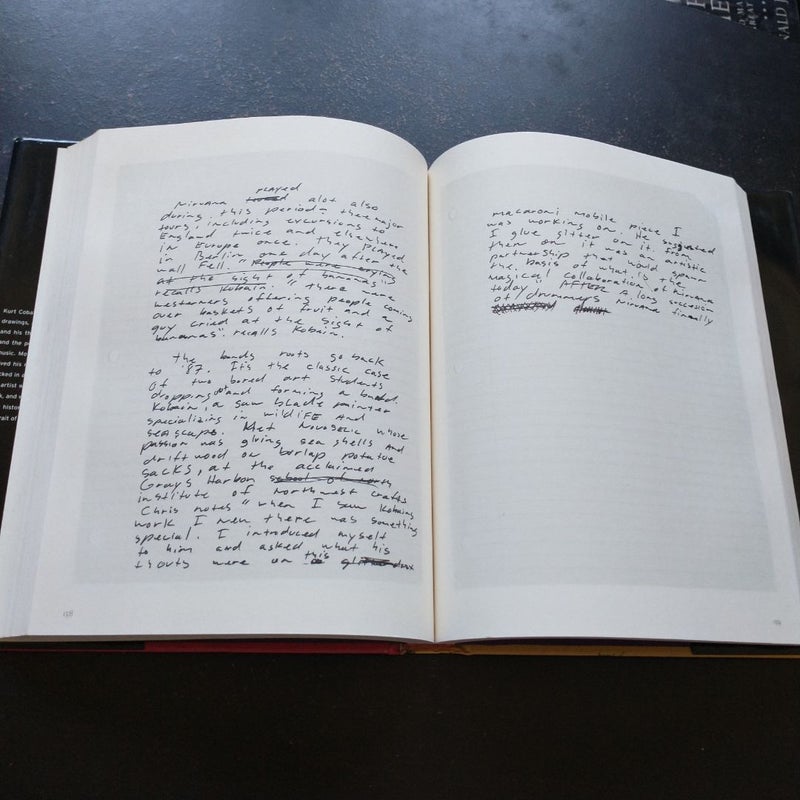 played
Nirvana toured alot also
during this period: three major
tours, including excursions to
England twice and elsewhere
in Europe once. they played
in Berlin one day after the
wall Fell. "People were crying
at the sight of bananas"
recalls Kobain. "there were
westerners offering people coming
over baskets of fruit and a
guy cried at the sight of
bananas". recalls Kobain.
The bands roots go back
to '87. It's the classic case
Of two bored art students
dropping out and forming a band.
Kobain, a saw blade painter
specializing in wildliFE And
seascape. Met Novoselic whose
passion was gluing sea shells And
driftwood on burlap potatoe
sacks, at the acclaimed
Grays Harbon school of north
institute of Northwest crafts
Chris notes "when I saw Kobains
work I new there was something
special. I introduced myself
to him and asked what his
thouts were on this a
158
macaroni mobile piece I
was working on. He suggested
I glue glitter on it. From
then on it was an artistic
partnership that would spawn
the basis of what is the
magical collaboration of nirvana
today" AFTER a long succession
of drummers Nirvana finally
159
Kurt Coba
drawings,
and his th
and the p
music. Mo
ived his
cked in a
artist w
k, and v
histor
rait of